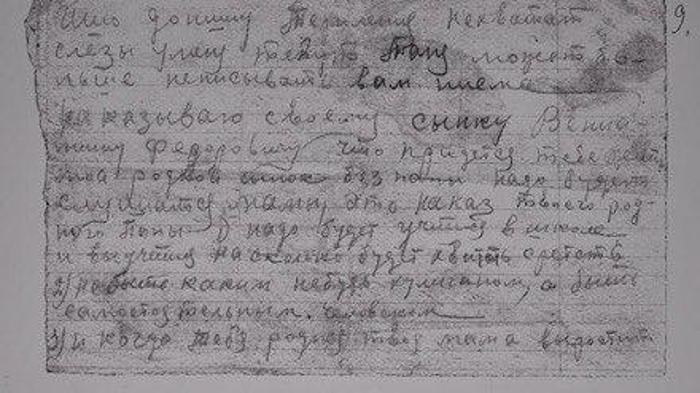 9.
допишу терпления нехватает
слёзы глаз текут Таиу может бо-
льше неписывать вам писма
наказываю своему сынку Вениа-
мину Федоровичу что придется тебе
родной без папи надо будет
слушатся маму это наказ твоего род-
ного Папы 1) надо будет учится в школе
и выучится насколько будет хватать средств
2) небыть каким небудь хулиганом, а быть
самостоятельным. человеком
3) и когда тебя родная твоя мама выростит